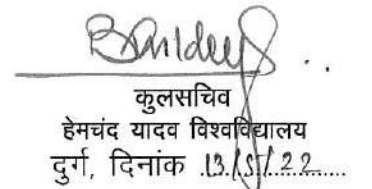 कुलसचिव
हेमचंद यादव विश्वविद्यालय
दुर्ग, दिनांक 13/5/22